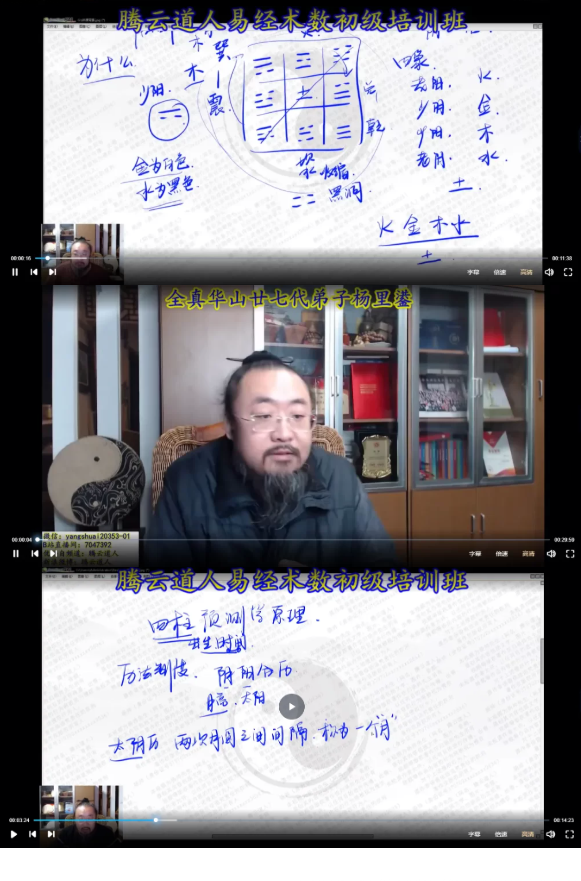 腾云道人易经术数初级培训班
为什么
木
巽
震
少阴
金为白色
水为黑色
土
坎
水
黑洞
兑
乾
四象
火
少阳
金
少阴
木
老阴
水
土
火金木水
土
00:00:16
00:11:38
字幕
倍速
高清
全真华山廿七代弟子杨里鋆
微信：yangshuai20353-01
B站直播间：7047392
00:00:04
00:29:59
字幕
倍速
高清
腾云道人易经术数初级培训班
四柱预测学原理.
出生时间.
历法制度. 阴阳合历
月亮.太阳
太阴历 两次月圆之间间隔.称为一个"月"
00:03:24
00:14:23
字幕
倍速
高清